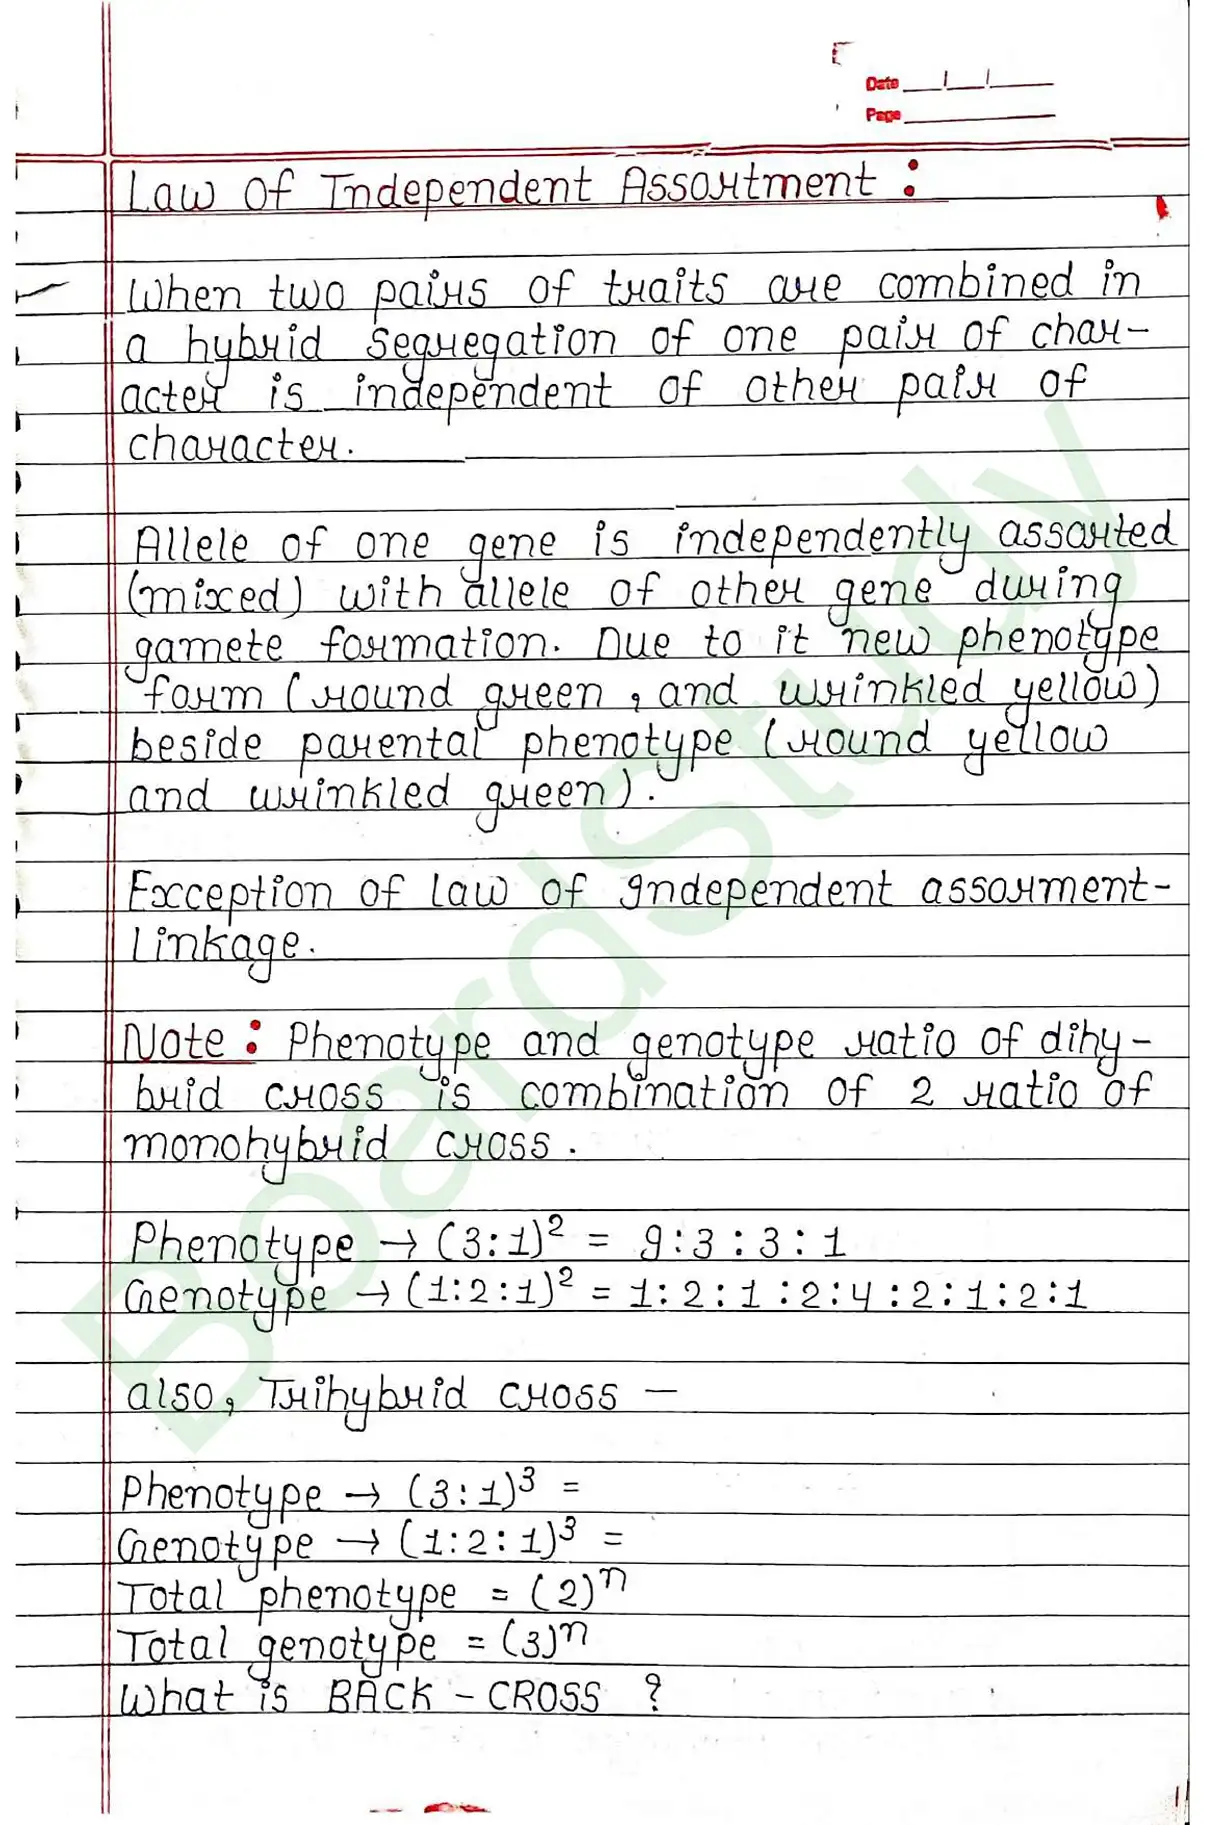 Date
Page
Law of Independent Assortment :
When two pairs of traits are combined in
a hybrid segregation of one pair of char-
acter is independent of other pair of
character.
Allele of one gene is independently assorted
(mixed) with allele of other gene during
gamete formation. Due to it new phenotype
form (round green, and wrinkled yellow)
beside parental phenotype (round yellow
and wrinkled green).
Exception of law of Independent assorment-
Linkage.
Note : Phenotype and genotype ratio of dihy-
brid cross is combination of 2 ratio of
monohybrid cross.
Phenotype → (3:1)² = 9:3:3:1
Genotype → (1:2:1)² = 1:2:1:2:4:2:1:2:1
also, Trihybrid cross -
Phenotype → (3:1)³ =
Genotype → (1:2:1)³ =
Total phenotype = (2)ⁿ
Total genotype = (3)ⁿ
What is BACK - CROSS ?
BoardStudy